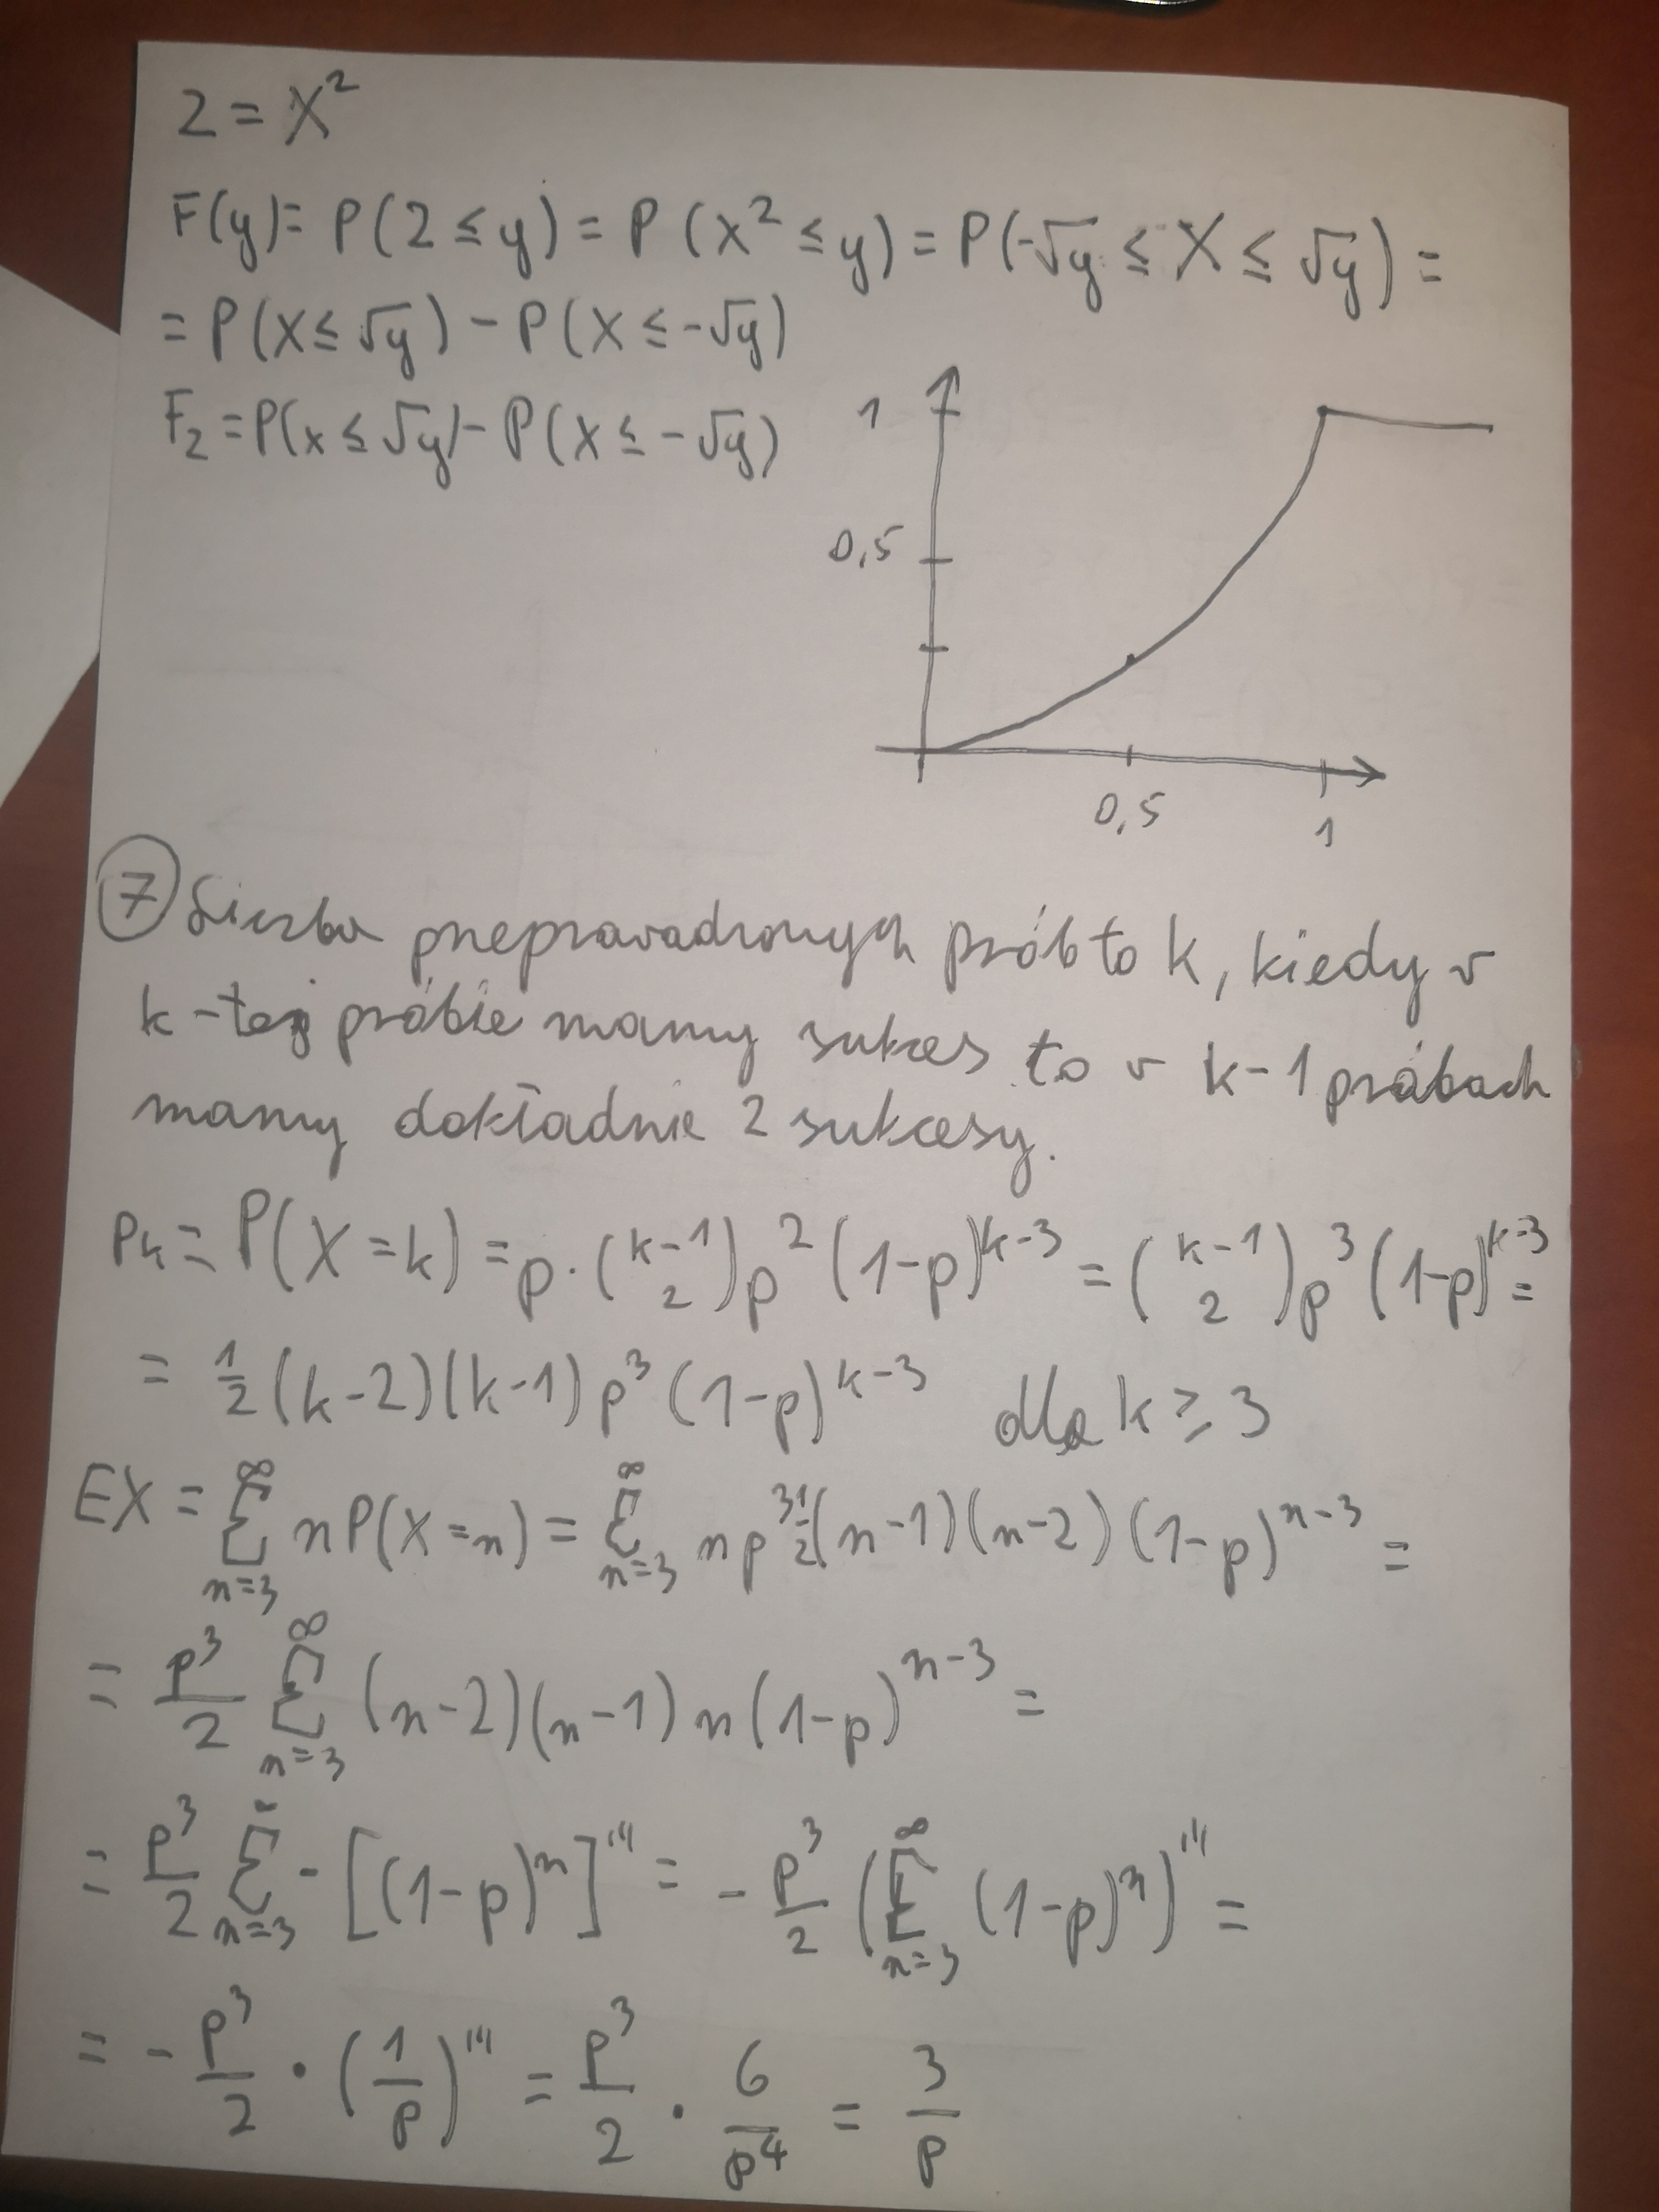 Z = X²
F(y) = P(Z ≤ y) = P(X² ≤ y) = P(-√y ≤ X ≤ √y) =
= P(X ≤ √y) - P(X ≤ -√y)
F_Z = P(X ≤ √y) - P(X ≤ -√y)
1
0,5
0,5
1
⑦ Liczba przeprowadzonych prób to k, kiedy w
k-tej próbie mamy sukces to w k-1 próbach
mamy dokładnie 2 sukcesy.
P_k = P(X = k) = p · (k-1 \choose 2) p² (1-p)^{k-3} = (k-1 \choose 2) p³ (1-p)^{k-3} =
= 1/2 (k-2)(k-1) p³ (1-p)^{k-3} dla k ≥ 3
EX = ∑_{n=3}^{∞} n P(X=n) = ∑_{n=3}^{∞} n p³ 1/2 (n-1)(n-2)(1-p)^{n-3} =
= p³/2 ∑_{n=3}^{∞} (n-2)(n-1) n (1-p)^{n-3} =
= p³/2 ∑_{n=3}^{∞} - [(1-p)^n]''' = - p³/2 (∑_{n=3}^{∞} (1-p)^n)''' =
= - p³/2 · (1/p)''' = p³/2 · 6/p⁴ = 3/p